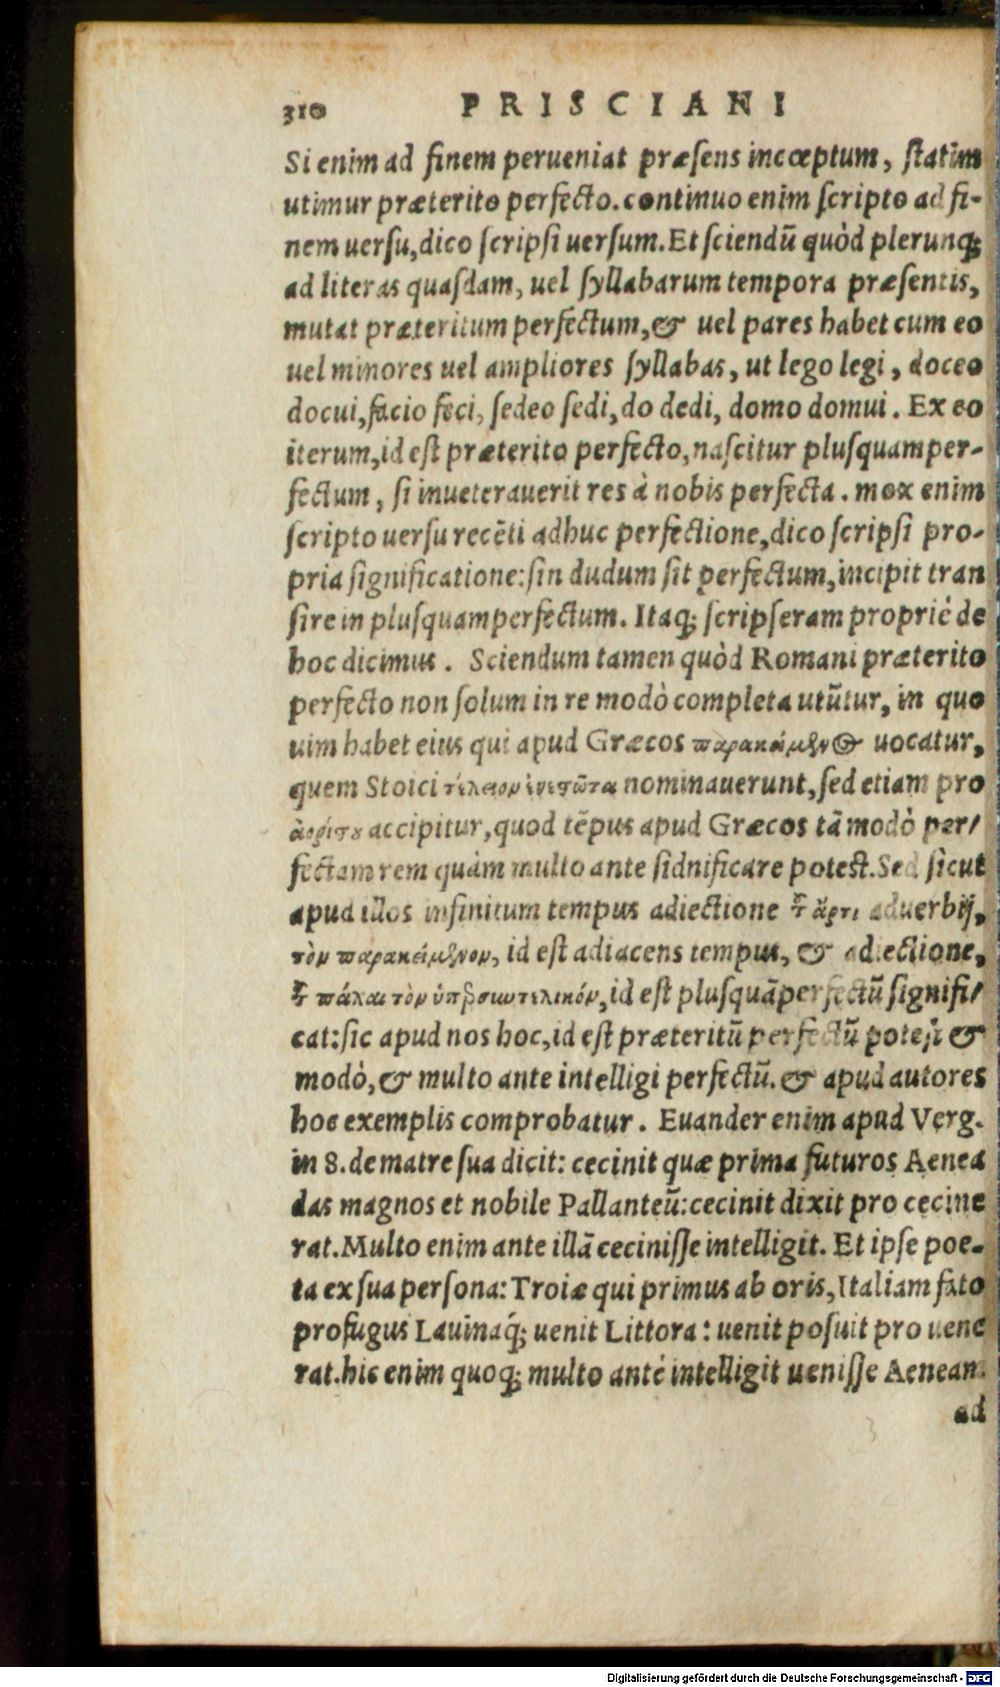 310 PRISCIANI
Si enim ad finem perueniat præsens incœptum, statim
utimur præterito perfecto. continuo enim scripto ad fi-
nem uersu, dico scripsi uersum. Et sciendū quòd plerunq;
ad literas quasdam, uel syllabarum tempora præsentis,
mutat præteritum perfectum, & uel pares habet cum eo
uel minores uel ampliores syllabas, ut lego legi, doceo
docui, facio feci, sedeo sedi, do dedi, domo domui. Ex eo
iterum, id est præterito perfecto, nascitur plusquamper-
fectum, si inueterauerit res à nobis perfecta. mox enim
scripto uersu recēti adhuc perfectione, dico scripsi pro-
pria significatione: sin dudum sit perfectum, incipit tran
sire in plusquamperfectum. Itaq; scripseram propriè de
hoc dicimus. Sciendum tamen quòd Romani præterito
perfecto non solum in re modò completa utūtur, in quo
uim habet eius qui apud Græcos παρακείμενος uocatur,
quem Stoici τέλειον ἐνεστῶτα nominauerunt, sed etiam pro
ἀορίστου accipitur, quod tēpus apud Græcos tā modò per/
fectam rem quàm multo ante sidnificare potest. Sed sicut
apud illos infinitum tempus adiectione τ̃ ἄρτι aduerbij,
τὸν παρακείμενον, id est adiacens tempus, & adiectione,
τ̃ πάλαι τὸν ὑπερσυντελικόν, id est plusquāperfectū signifi/
cat: sic apud nos hoc, id est præteritū perfectū potest &
modò, & multo ante intelligi perfectū. & apud autores
hoc exemplis comprobatur. Euander enim apud Verg.
in 8. de matre sua dicit: cecinit quæ prima futuros Aenea
das magnos et nobile Pallanteū: cecinit dixit pro cecine
rat. Multo enim ante illā cecinisse intelligit. Et ipse poe-
ta ex sua persona: Troiæ qui primus ab oris, Italiam fato
profugus Lauinaq́; uenit Littora: uenit posuit pro uene
rat. hic enim quoq; multo antè intelligit uenisse Aenean.
ad
Digitalisierung gefördert durch die Deutsche Forschungsgemeinschaft - DFG